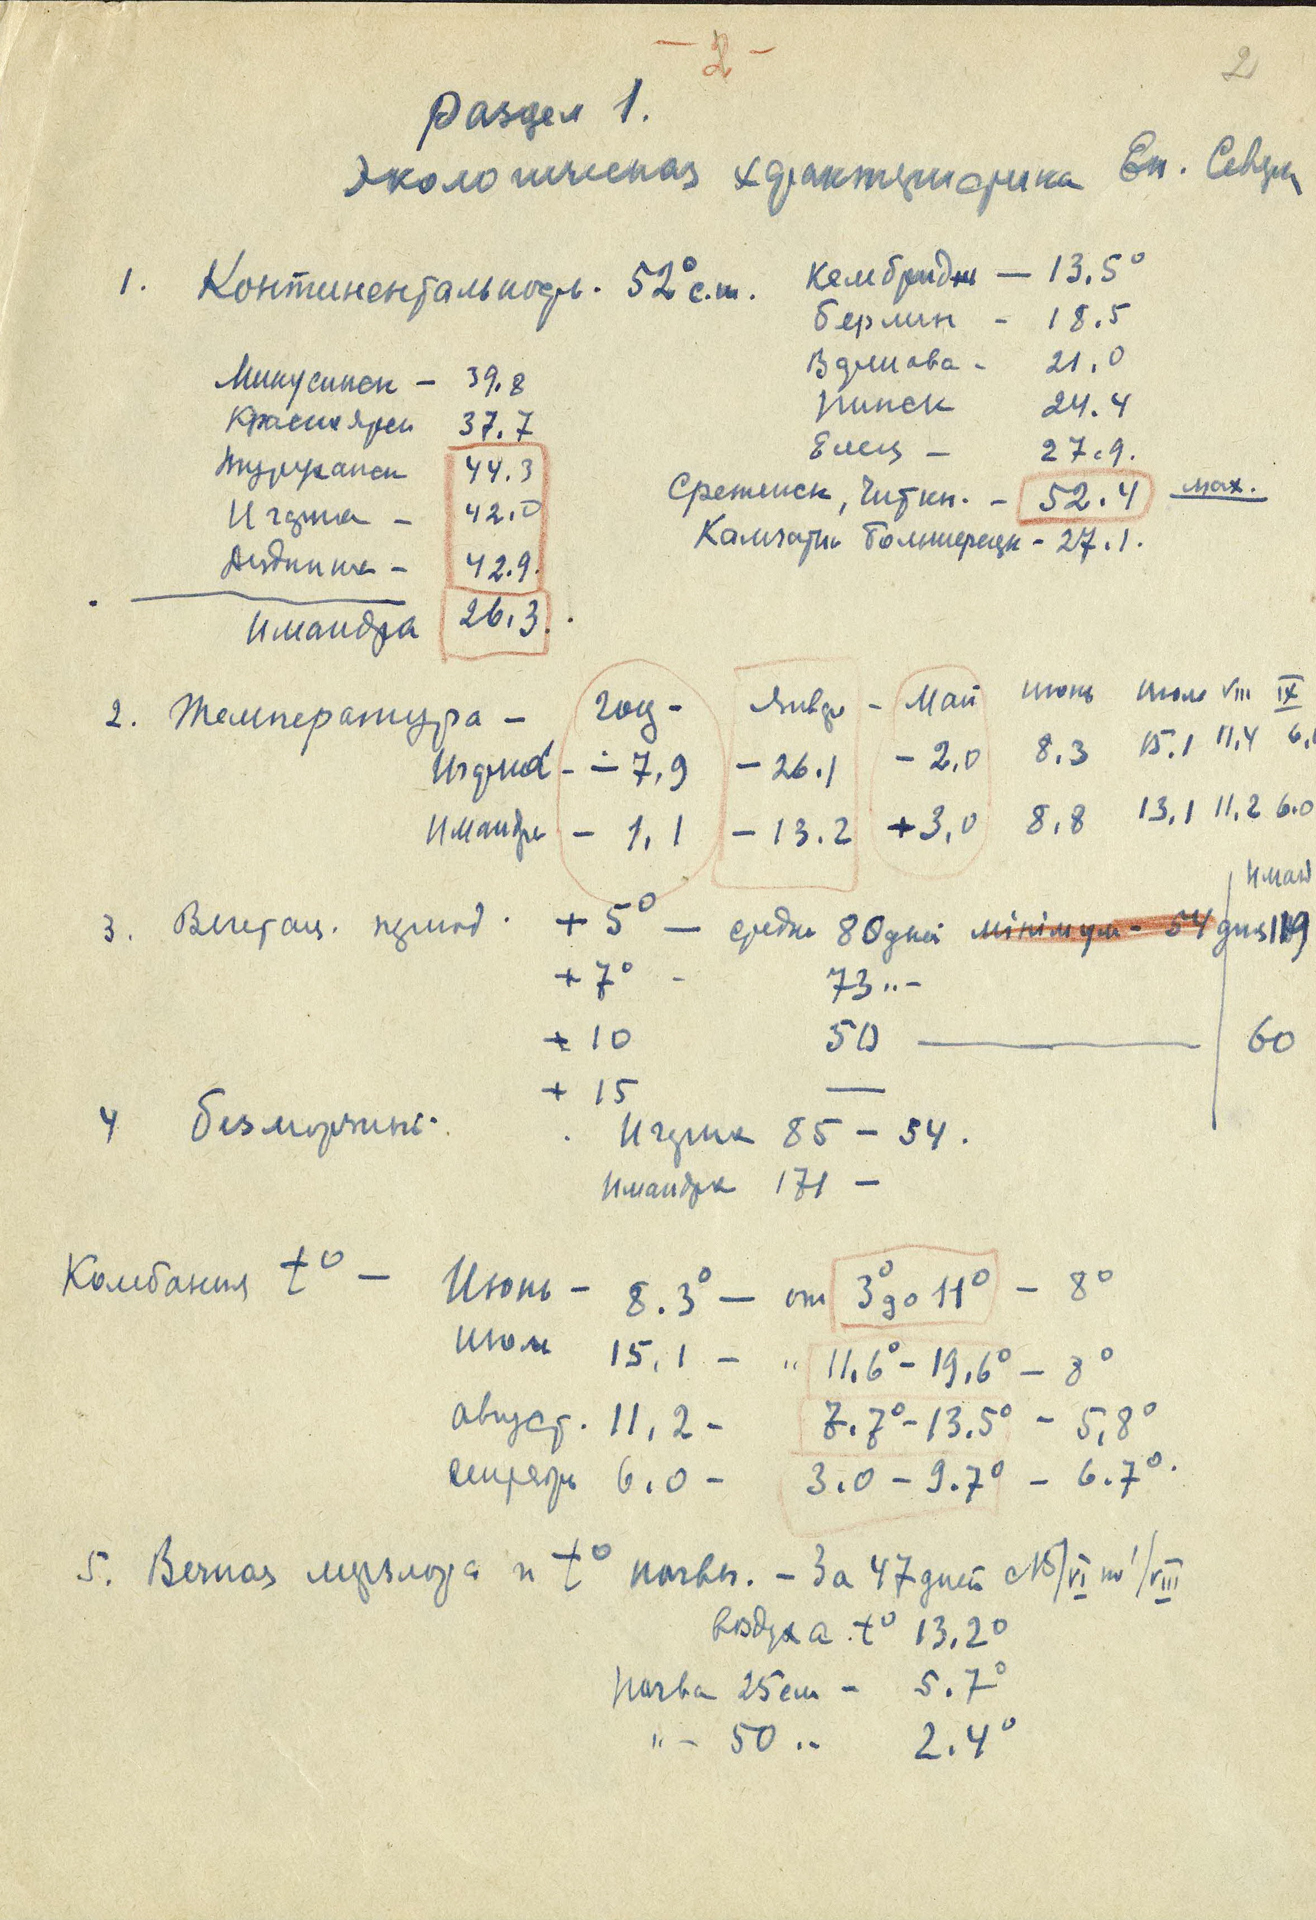 - 2 -
2
Раздел 1.
Экологическая характеристика Ен. Севера
1. Континентальность. 52° с.ш.
Кембридж — 13.5°
Берлин - 18.5
Варшава - 21.0
Пинск 24.4
Елец — 27.9.
Сретенск, Читин. - 52.4 мах.
Камчатка Большерецк - 27.1.
Минусинск — 39.8
Красноярск 37.7
Туруханск 44.3
Игарка - 42.0
Дудинка - 42.9.
Имандра 26.3.
2. Температура — год - январь - май июнь июль VIII IX
Игарка - - 7,9 - 26.1 - 2,0 8.3 15.1 11,4
Имандра - 1,1 - 13.2 + 3,0 8,8 13,1 11,2 6.0
3. Вегетац. период. + 5° — средн 80 дней минимум - 54 дня 119
+ 7° - 73 "-
+ 10 50 — 60
+ 15 —
4 Безморозный.
Игарка 85 - 54.
Имандра 171 —
Колебания t° — Июнь - 8.3° — от 3° до 11° - 8°
Июль 15,1 - " 11,6° - 19,6° - 8°
август. 11,2 - 7.7° - 13.5° - 5,8°
сентябрь 6.0 - 3.0 - 9.7° - 6.7°.
5. Вечная мерзлота и t° почвы. - За 47 дней с 15/VI по 1/VIII
воздуха t° 13,2°
Почва 25 см - 5.7°
"- 50 " 2.4°